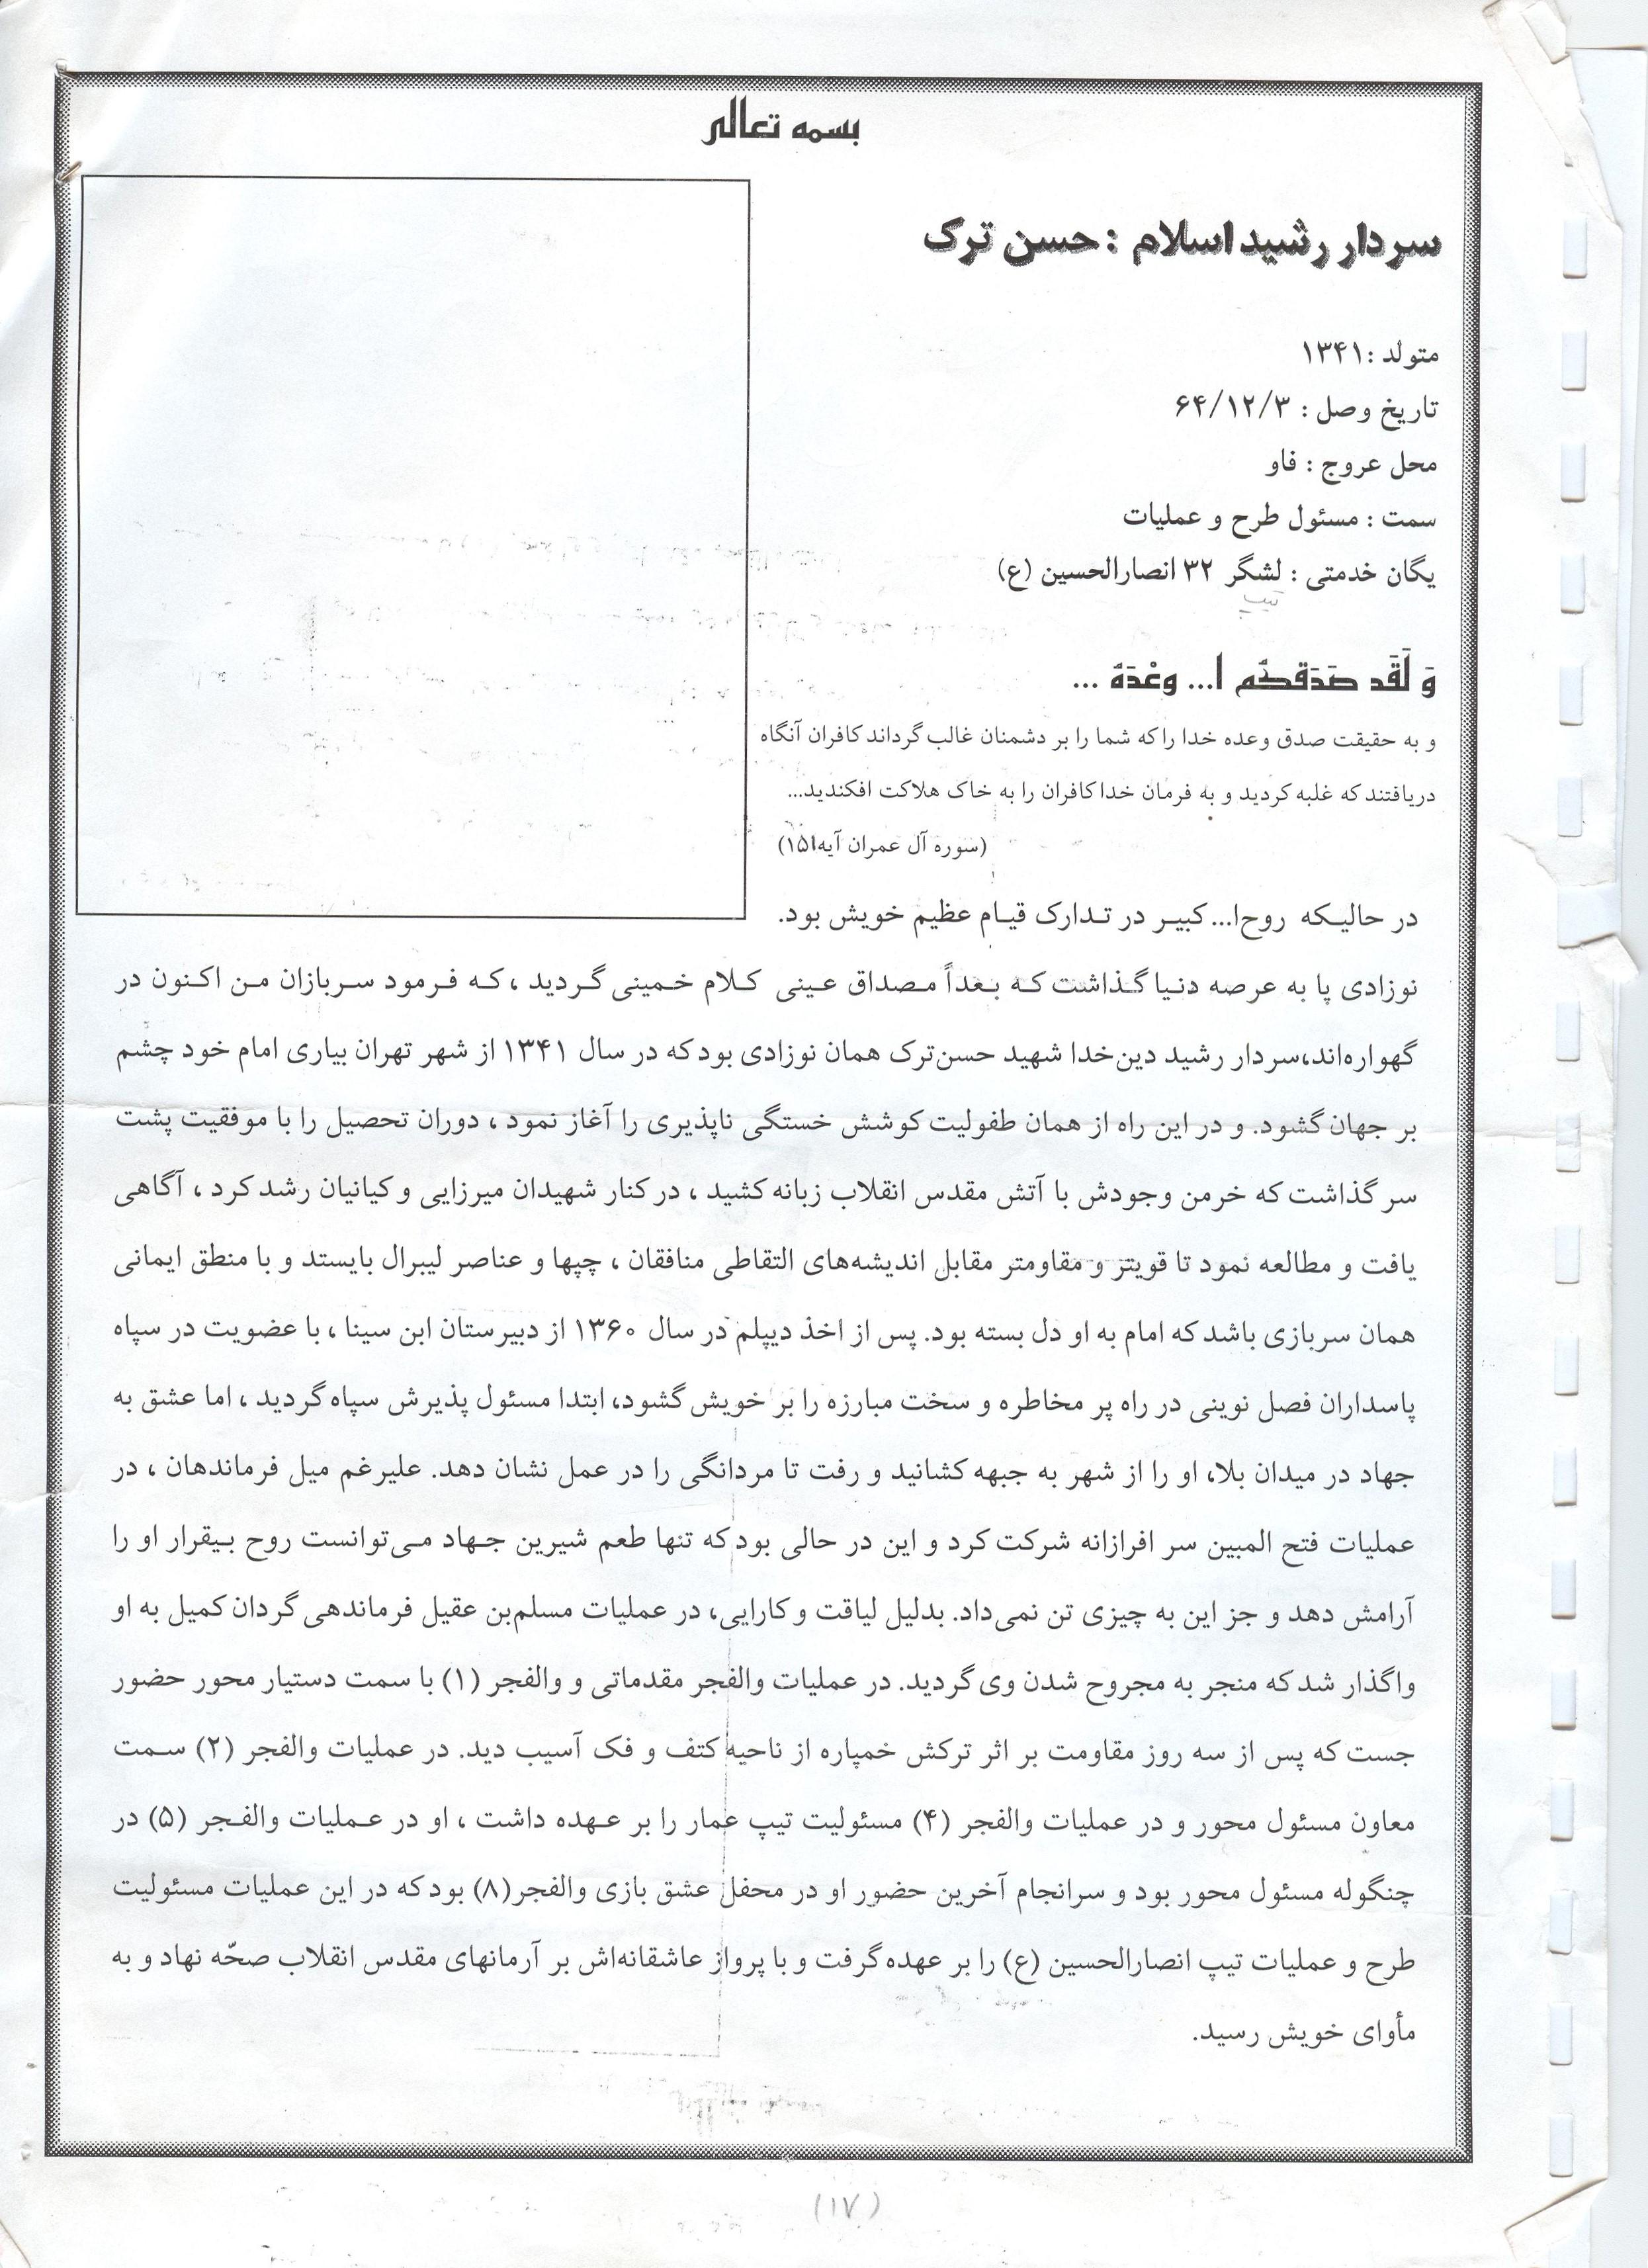 بسمه تعالی
سردار رشید اسلام : حسن ترک
متولد :۱۳۴۱
تاریخ وصل : ۶۴/۱۲/۳
محل عروج : فاو
سمت : مسئول طرح و عملیات
یگان خدمتی : لشگر ۳۲ انصارالحسین (ع)
تیپ
وَ لَقَد صَدَقَکُم ا... وعْدَهُ ...
و به حقیقت صدق وعده خدا را که شما را بر دشمنان غالب گرداند کافران آنگاه
دریافتند که غلبه کردید و به فرمان خدا کافران را به خاک هلاکت افکندید...
(سوره آل عمران آیه۱۵۱)
در حالیکه روح‌ا... کبیر در تدارک قیام عظیم خویش بود.
نوزادی پا به عرصه دنیا گذاشت که بعداً مصداق عینی کلام خمینی گردید ، که فرمود سربازان من اکنون در
گهواره‌اند،سردار رشید دین‌خدا شهید حسن‌ترک همان نوزادی بود که در سال ۱۳۴۱ از شهر تهران بیاری امام خود چشم
بر جهان گشود. و در این راه از همان طفولیت کوشش خستگی ناپذیری را آغاز نمود ، دوران تحصیل را با موفقیت پشت
سر گذاشت که خرمن وجودش با آتش مقدس انقلاب زبانه کشید ، در کنار شهیدان میرزایی و کیانیان رشد کرد ، آگاهی
یافت و مطالعه نمود تا قویتر و مقاومتر مقابل اندیشه‌های التقاطی منافقان ، چپها و عناصر لیبرال بایستد و با منطق ایمانی
همان سربازی باشد که امام به او دل بسته بود. پس از اخذ دیپلم در سال ۱۳۶۰ از دبیرستان ابن سینا ، با عضویت در سپاه
پاسداران فصل نوینی در راه پر مخاطره و سخت مبارزه را بر خویش گشود، ابتدا مسئول پذیرش سپاه گردید ، اما عشق به
جهاد در میدان بلا، او را از شهر به جبهه کشانید و رفت تا مردانگی را در عمل نشان دهد. علیرغم میل فرماندهان ، در
عملیات فتح المبین سر افرازانه شرکت کرد و این در حالی بود که تنها طعم شیرین جهاد می‌توانست روح بیقرار او را
آرامش دهد و جز این به چیزی تن نمی‌داد. بدلیل لیاقت و کارایی، در عملیات مسلم‌بن عقیل فرماندهی گردان کمیل به او
واگذار شد که منجر به مجروح شدن وی گردید. در عملیات والفجر مقدماتی و والفجر (۱) با سمت دستیار محور حضور
جست که پس از سه روز مقاومت بر اثر ترکش خمپاره از ناحیه کتف و فک آسیب دید. در عملیات والفجر (۲) سمت
معاون مسئول محور و در عملیات والفجر (۴) مسئولیت تیپ عمار را بر عهده داشت ، او در عملیات والفجر (۵) در
چنگوله مسئول محور بود و سرانجام آخرین حضور او در محفل عشق بازی والفجر(۸) بود که در این عملیات مسئولیت
طرح و عملیات تیپ انصارالحسین (ع) را بر عهده گرفت و با پرواز عاشقانه‌اش بر آرمانهای مقدس انقلاب صحّه نهاد و به
مأوای خویش رسید.
(۱۷)